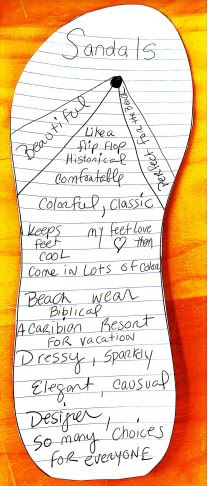 Sandals
Beautiful
Perfect For the Beach
Like a
flip flop
Historical
Comfortable
Colorful, classic
Keeps my feet Love
feet ♡ them
COOL
Come in Lots of Colors
Beach wear
Biblical
A Caribian Resort
FOR vacation
Dressy, Sparkly
Elegant, causual
Designer,
So many choices
FOR EVERYONE